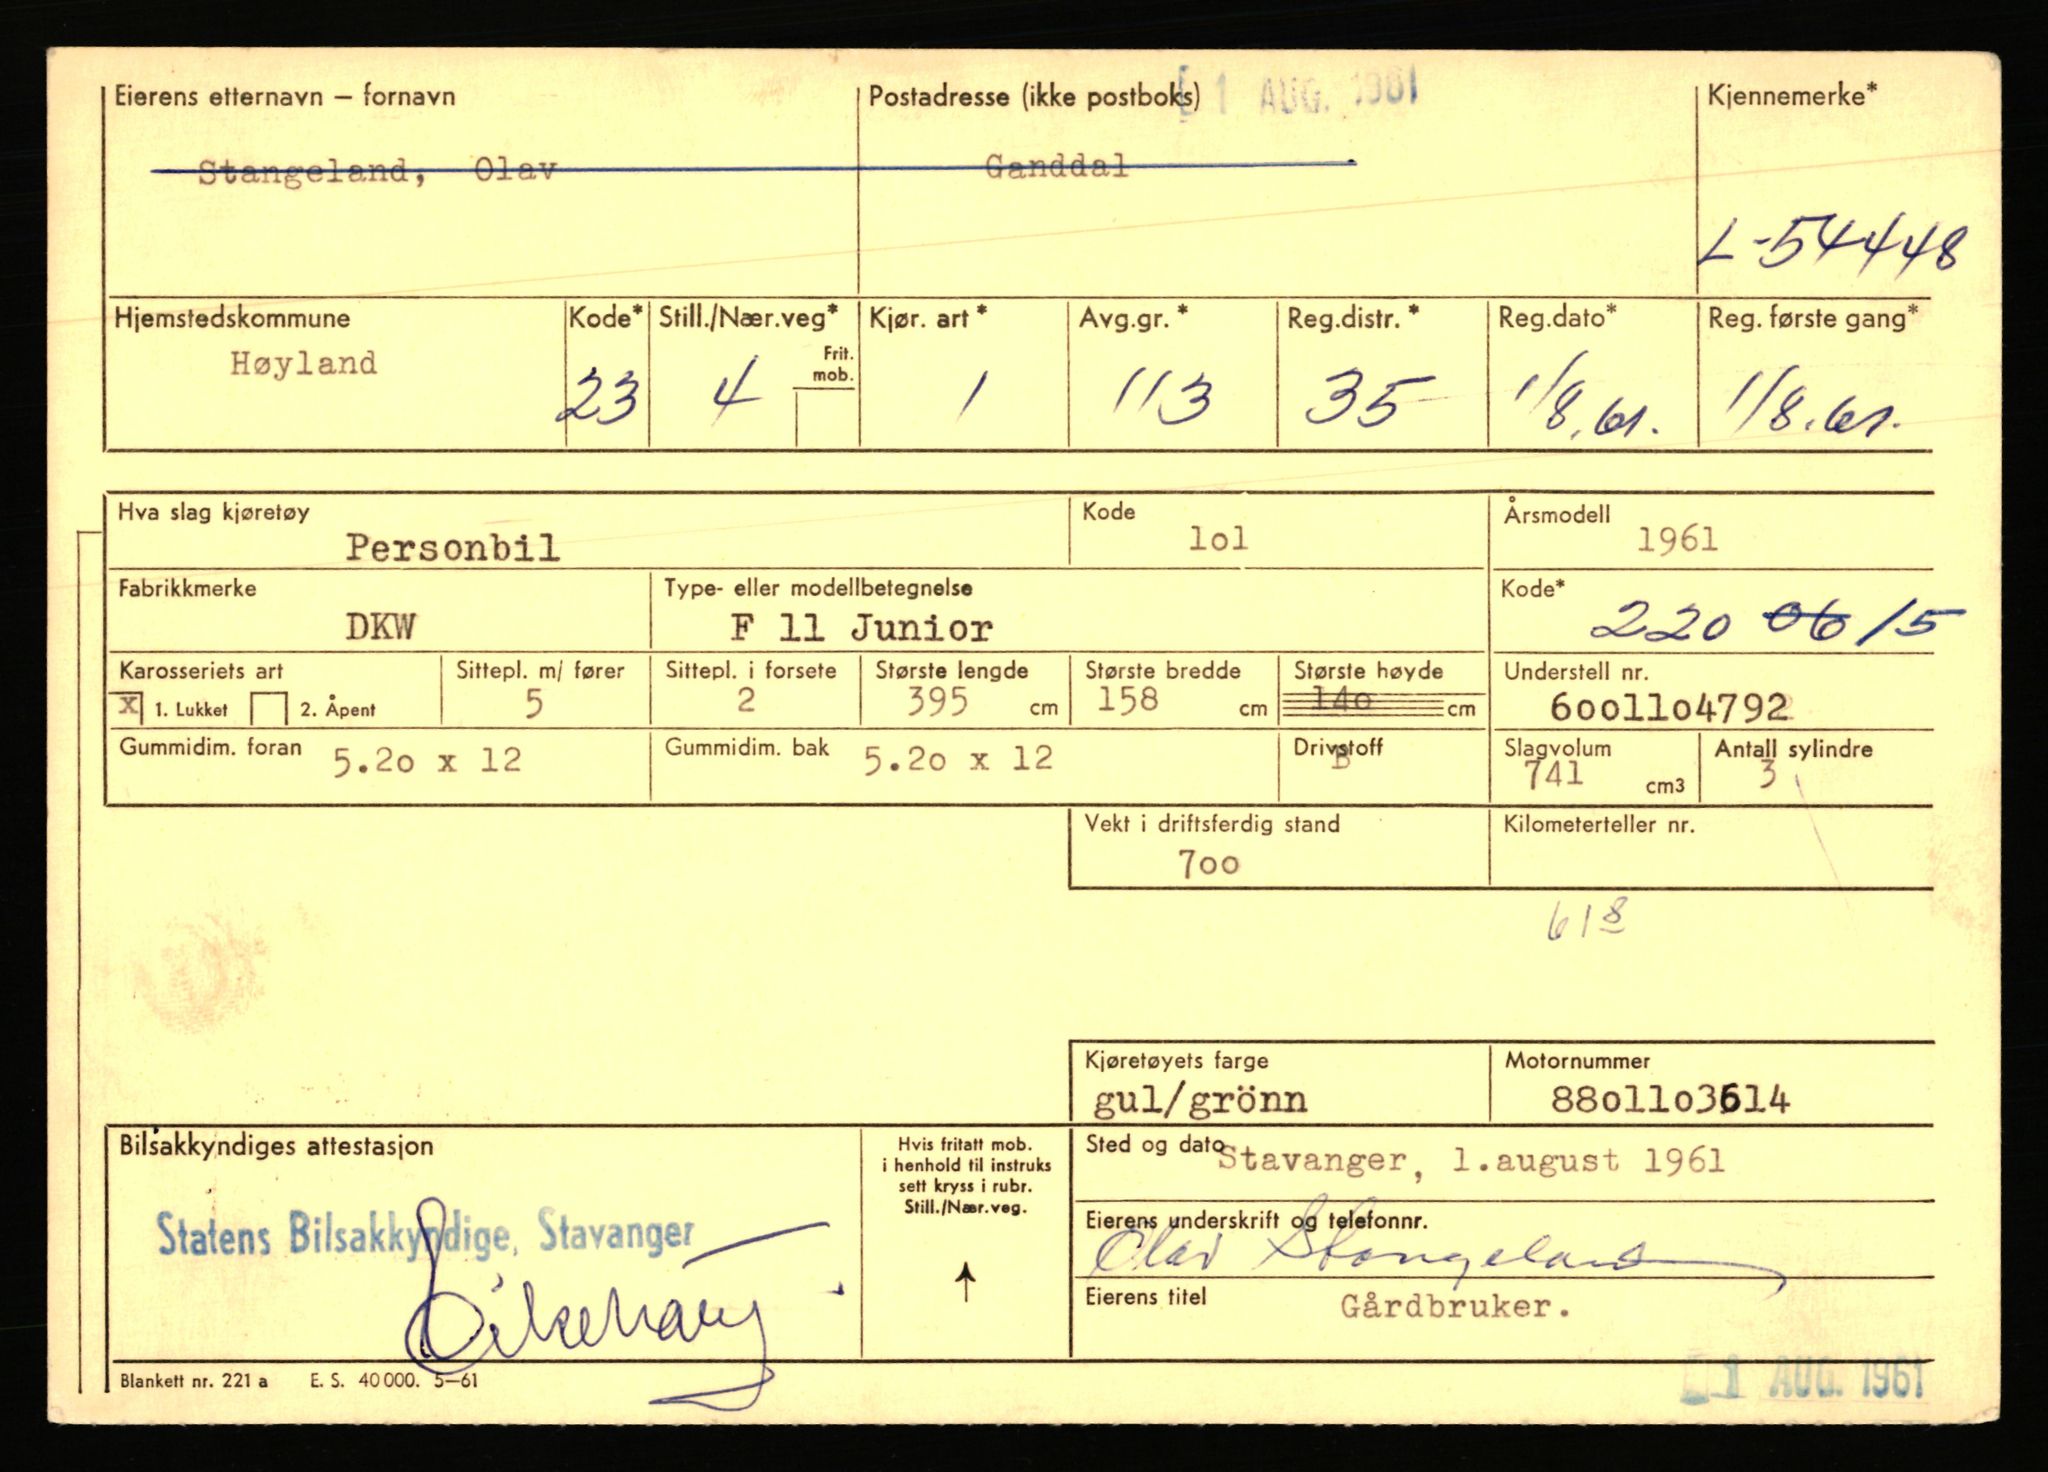 1 AUG. 1961
Eierens etternavn – fornavn Postadresse (ikke postboks) Kjennemerke*
Stangeland, Olav Ganddal
L-54448
Hjemstedskommune Kode* Still./Nær.veg* Kjør. art* Avg.gr.* Reg.distr.* Reg.dato* Reg. første gang*
Høyland Frit. mob.
23 4 1 113 35 1/8.61. 1/8.61.
Hva slag kjøretøy Kode Årsmodell
Personbil lol 1961
Fabrikkmerke Type- eller modellbetegnelse Kode*
DKW F 11 Junior 220 06 15
Karosseriets art Sittepl. m/ fører Sittepl. i forsete Største lengde Største bredde Største høyde Understell nr.
x 1. Lukket 2. Åpent 5 2 395 cm 158 cm 14o cm 6oo11o4792
Gummidim. foran 5.2o x 12 Gummidim. bak 5.2o x 12 Drivstoff B Slagvolum 741 cm3 Antall sylindre 3
Vekt i driftsferdig stand Kilometerteller nr.
7oo
61 8
Kjøretøyets farge Motornummer
gul/grönn 88o11o3614
Bilsakkyndiges attestasjon Hvis fritatt mob. i henhold til instruks sett kryss i rubr. Still./Nær.veg.
Sted og dato Stavanger, 1.august 1961
Statens Bilsakkyndige, Stavanger
Eierens underskrift og telefonnr.
Olav Stangeland
Eierens titel Gårdbruker.
Blankett nr. 221 a E. S. 40 000. 5–61
1 AUG. 1961